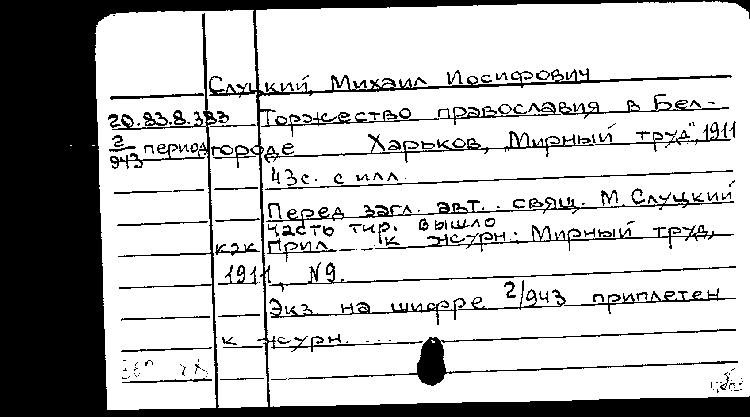 Слуцкий, Михаил Иосифович
20.83.8.383 Торжество православия в Бел-
2/943 период городе Харьков, „Мирный труд", 1911
43с. с илл.
Перед загл. авт.: свящ. М. Слуцкий
Часть тир. вышло
как прил. к журн: Мирный труд,
1911, №9.
Экз на шифре 2/943 приплетен
к журн....